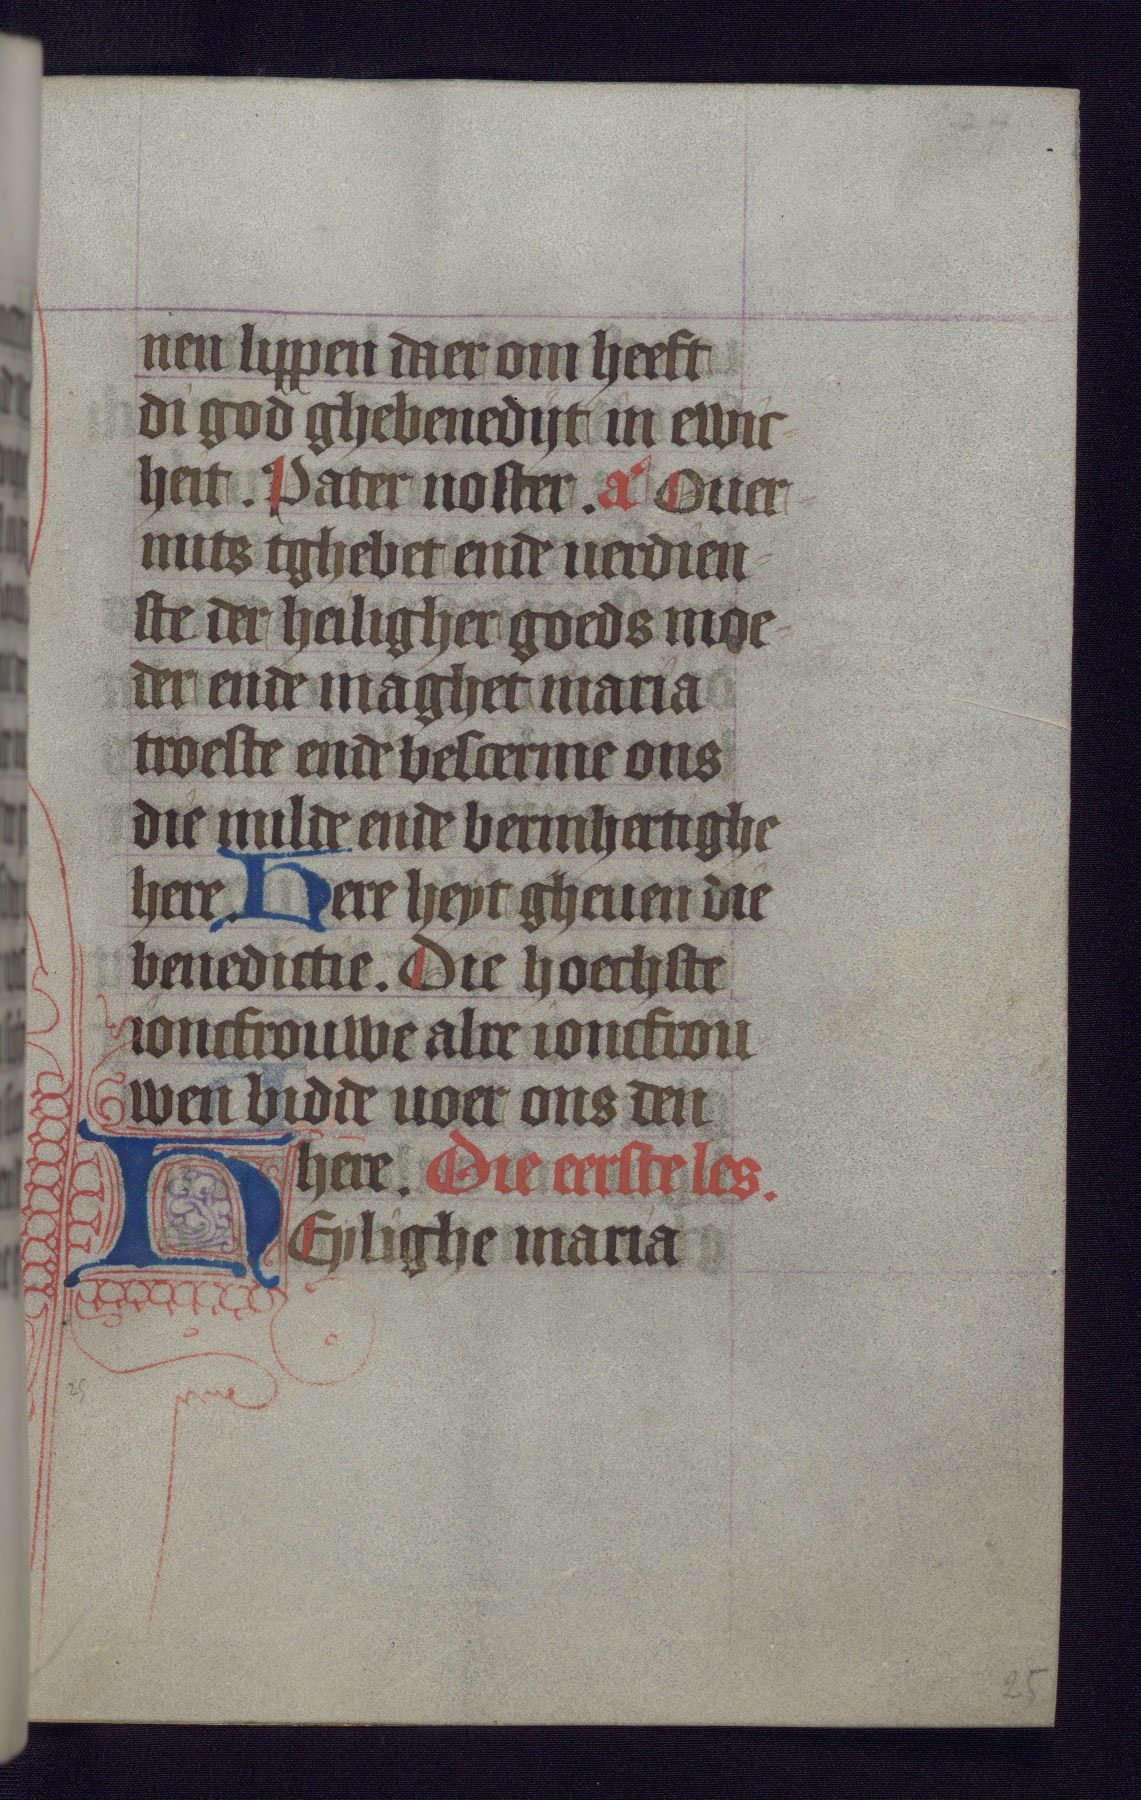 nen lippen daer om heeft
di god ghebenedijt in ewic-
heit. Pater noster. a Ouer-
mits tghebet ende uerdien-
ste der heiligher goeds moe-
der ende maghet maria
troeste ende bescerme ons
die milde ende bermhertighe
here. Here heyt gheuen die
benedictie. Die hoechste
ioncfrouwe alre ioncfrou
wen bidde uoer ons den
here. Die eerste les.
HEylighe maria
25
25